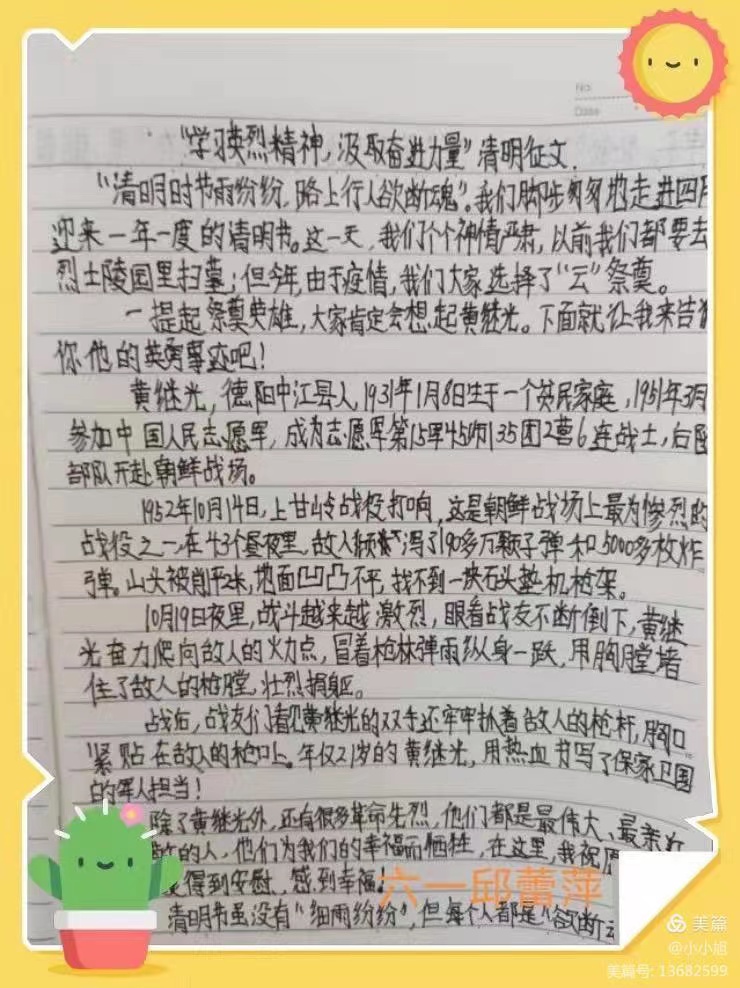 No.
Date
"学习英烈精神,汲取奋进力量"清明征文
"清明时节雨纷纷,路上行人欲断魂"。我们脚步匆匆地走进四月
迎来一年一度的清明节。这一天,我们个个神情严肃,以前我们都要去
烈士陵园里扫墓;但今年,由于疫情,我们大家选择了"云"祭奠。
一提起祭奠英雄,大家肯定会想起黄继光。下面就让我来告
你他的英勇事迹吧!
黄继光,德阳中江县人,1931年1月8日生于一个贫民家庭,1951年3月
参加中国人民志愿军,成为志愿军第15军45师135团2营6连战士,后随
部队开赴朝鲜战场。
1952年10月14日,上甘岭战役打响,这是朝鲜战场上最为惨烈的
战役之一,在43个昼夜里,敌人倾泻了190多万颗子弹和5000多枚炸
弹。山头被削平2米,地面凹凸不平,找不到一块石头垫机枪架。
10月19日夜里,战斗越来越激烈,眼看战友不断倒下,黄继
光奋力爬向敌人的火力点,冒着枪林弹雨纵身一跃,用胸膛堵
住了敌人的枪膛,壮烈捐躯。
战后,战友们看见黄继光的双手还牢牢抓着敌人的枪杆,胸口
紧贴在敌人的枪口上。年仅21岁的黄继光,用热血书写了保家卫国
的军人担当!
除了黄继光外,还有很多革命先烈,他们都是最伟大、最亲近
的人,他们为我们的幸福而牺牲,在这里,我祝愿
得到安慰,感到幸福!
六一邱蕾萍
清明节虽没有"细雨纷纷",但每个人都是"欲断
美篇
@小小旭
美篇号: 13682599